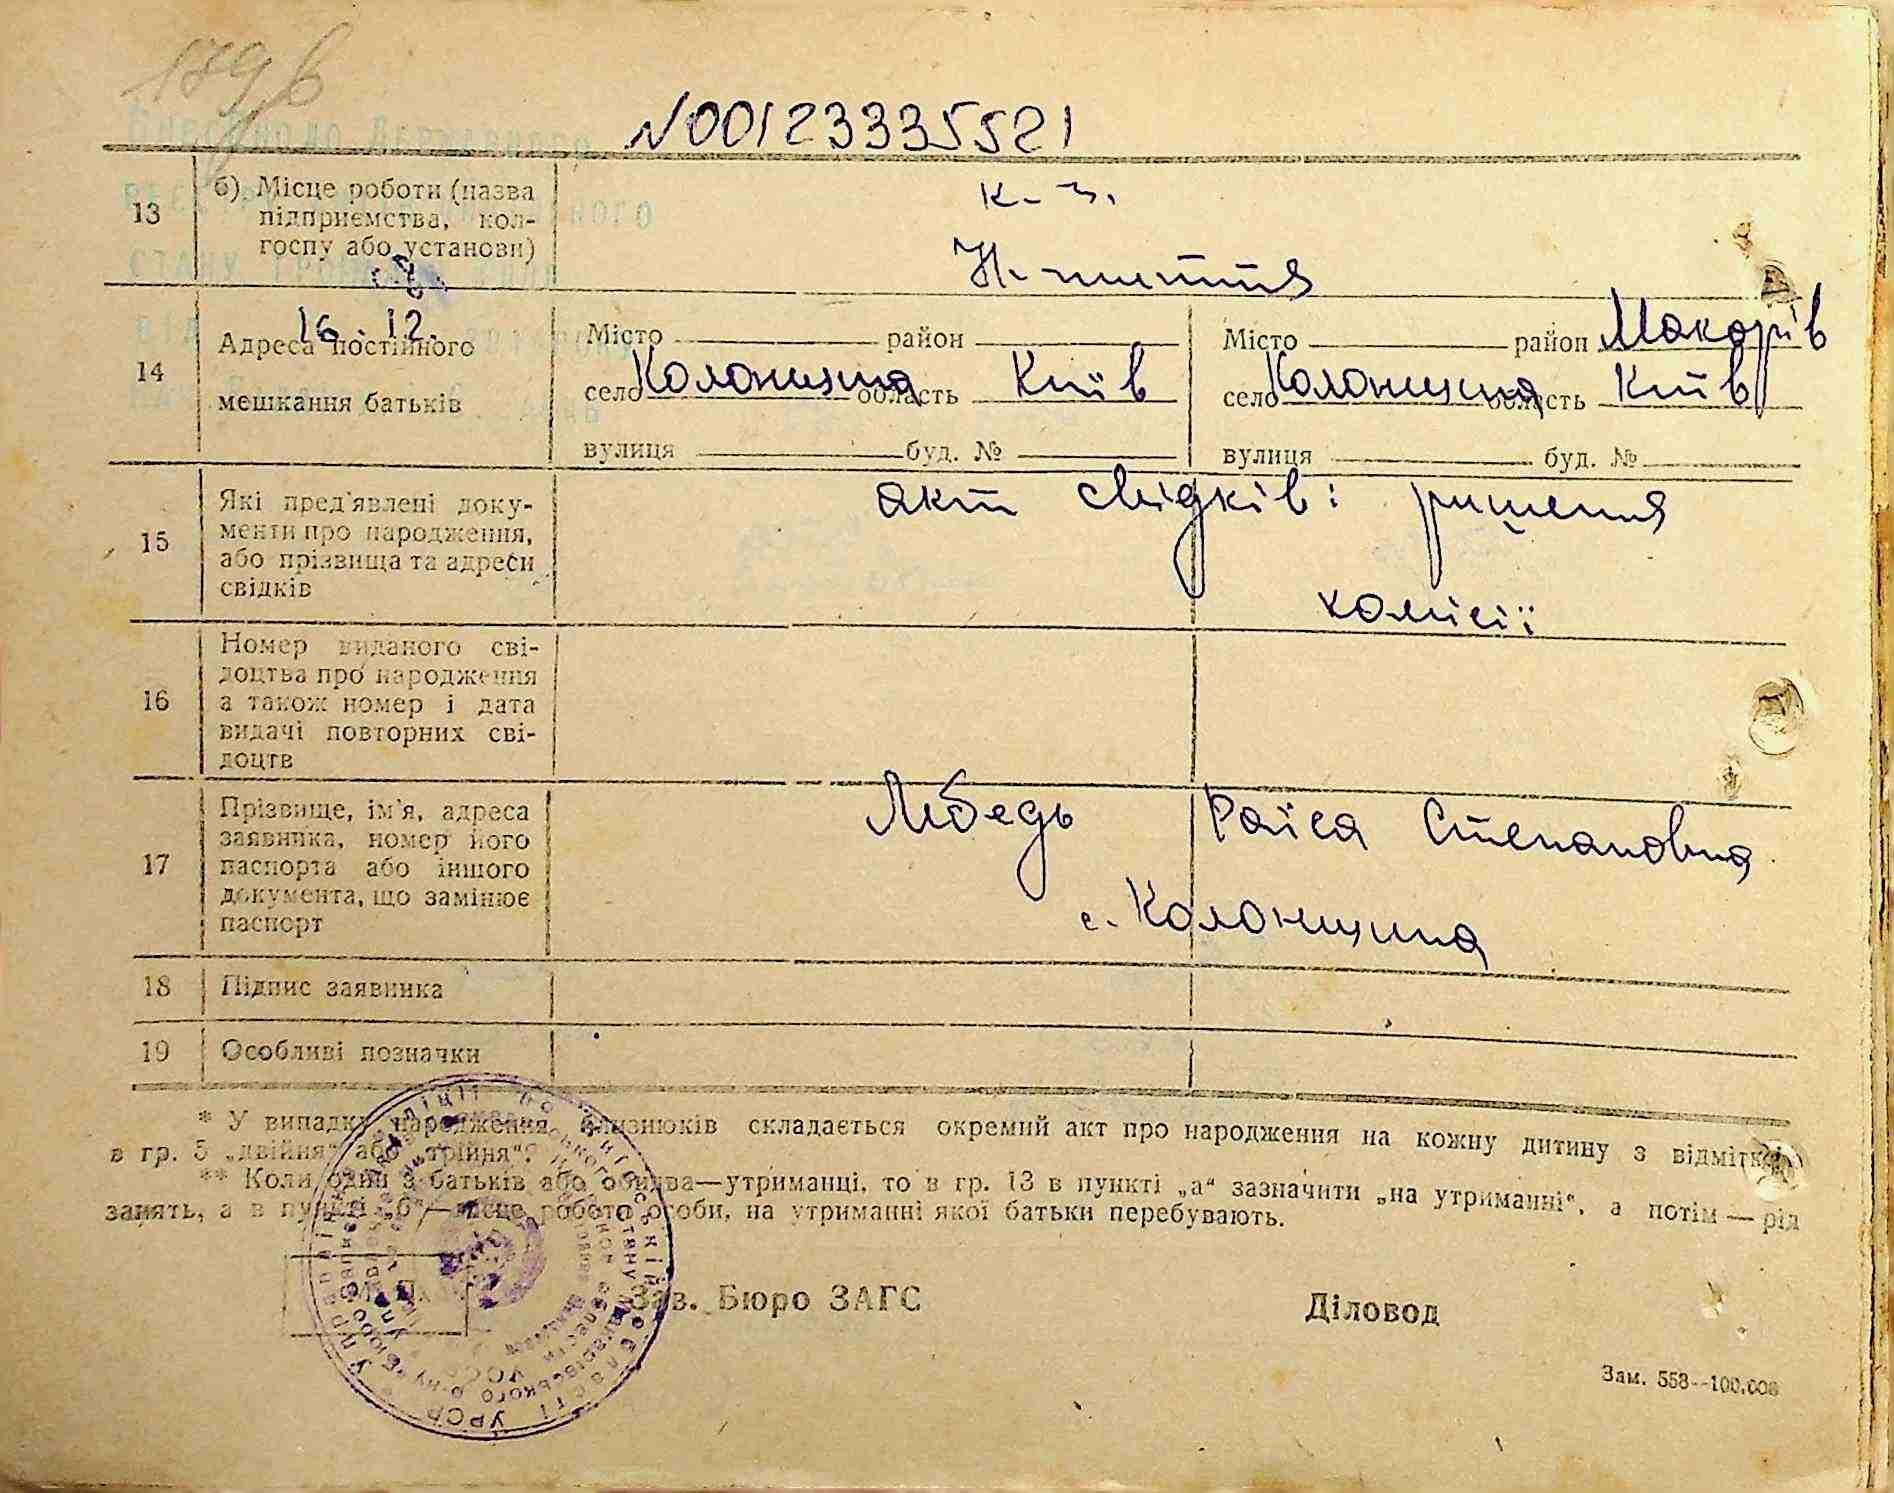 179 в
N00123335521
13 б) Місце роботи (назва підприємства, кол-госпу або установи) к-з.
Н-життя
16.12.
14 Адреса постійного мешкання батьків
Місто район Місто район Макарів
село Колонщина область Київ село Колонщина область Київ
вулиця буд. № вулиця буд. №
15 Які пред'явлені доку-
менти про народження,
або прізвища та адреси
свідків
акт свідків: ришення
комісії
16 Номер виданого сві-
доцтва про народження
а також номер і дата
видачі повторних сві-
доцтв
17 Прізвище, ім'я, адреса
заявника, номер його
паспорта або іншого
документа, що замінює
паспорт
Лебедь Раїса Степановна
с. Колонщина
18 Підпис заявника
19 Особливі позначки
* У випадку народження близнюків складається окремий акт про народження на кожну дитину з відміткою
в гр. 5 „двійня“ або „трійня“.
** Коли один з батьків або обидва—утриманці, то в гр. 13 в пункті „а“ зазначити „на утриманні“, а потім — рід
занять, а в пункті „б“—місце роботи особи, на утриманні якої батьки перебувають.
М. П. Зав. Бюро ЗАГС Діловод
Зам. 558--100.000